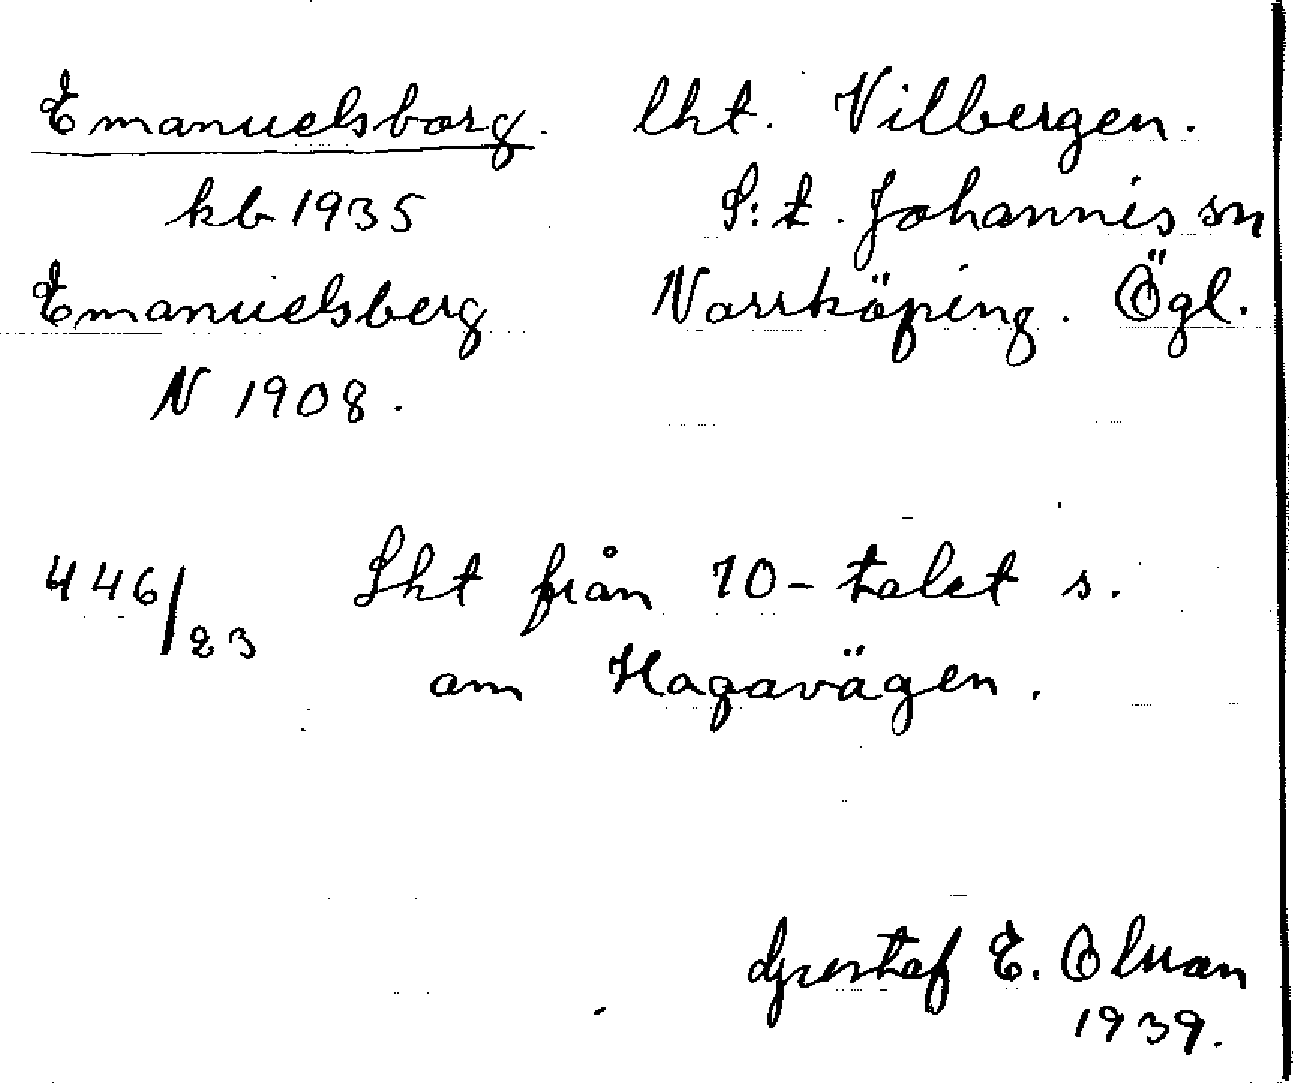 Emanuelsborg. lht. Vilbergen.
kb 1935 S:t. Johannis sn
Emanuelsberg Norrköping. Ögl.
N 1908.
446/23 Lht från 10-talet s.
om Hagavägen.
Gustaf E. Olsson
1939.